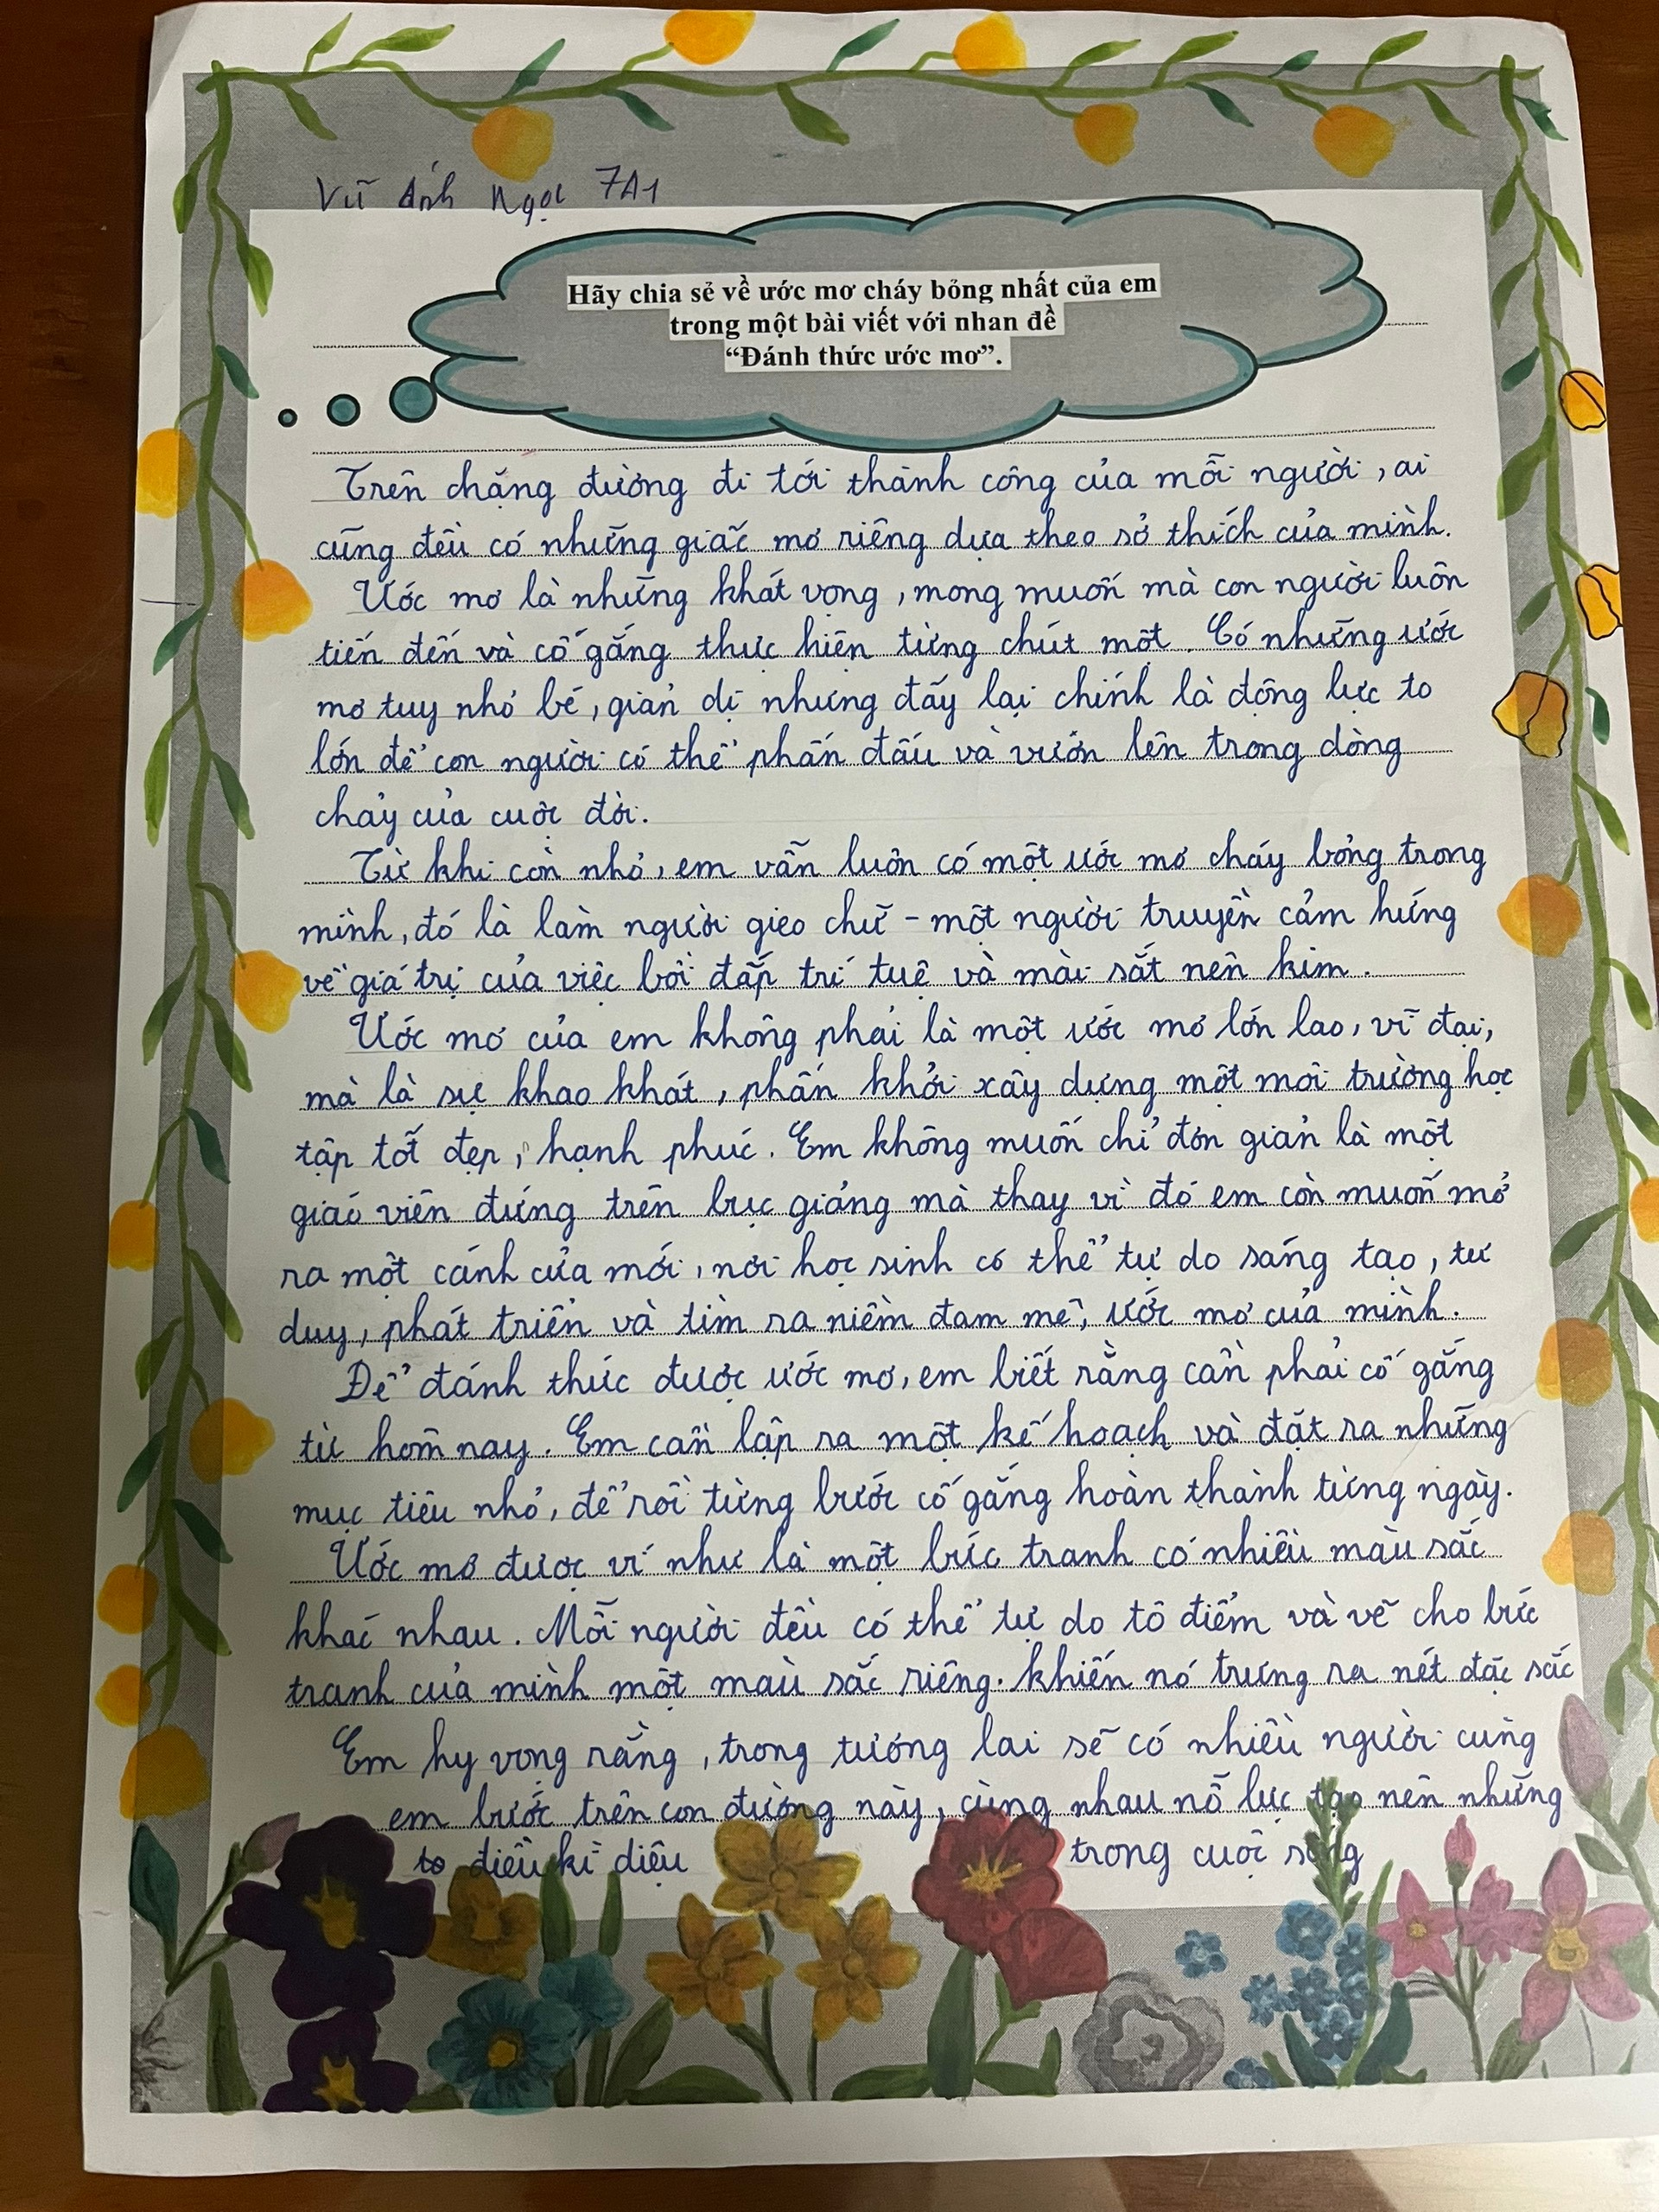 Vũ Ánh Ngọc 7A1
Hãy chia sẻ về ước mơ cháy bỏng nhất của em
trong một bài viết với nhan đề
“Đánh thức ước mơ”.
Trên chặng đường đi tới thành công của mỗi người, ai
cũng đều có những giấc mơ riêng dựa theo sở thích của mình.
Ước mơ là những khát vọng, mong muốn mà con người luôn
tiến đến và cố gắng thực hiện từng chút một. Có những ước
mơ tuy nhỏ bé, giản dị nhưng đấy lại chính là động lực to
lớn để con người có thể phấn đấu và vươn lên trong dòng
chảy của cuộc đời.
Từ khi còn nhỏ, em vẫn luôn có một ước mơ cháy bỏng trong
mình, đó là làm người gieo chữ - một người truyền cảm hứng
về giá trị của việc bồi đắp trí tuệ và mài sắt nên kim.
Ước mơ của em không phải là một ước mơ lớn lao, vĩ đại,
mà là sự khao khát, phấn khởi xây dựng một môi trường học
tập tốt đẹp, hạnh phúc. Em không muốn chỉ đơn giản là một
giáo viên đứng trên bục giảng mà thay vì đó em còn muốn mở
ra một cánh cửa mới, nơi học sinh có thể tự do sáng tạo, tư
duy, phát triển và tìm ra niềm đam mê, ước mơ của mình.
Để đánh thức được ước mơ, em biết rằng cần phải cố gắng
từ hôm nay. Em cần lập ra một kế hoạch và đặt ra những
mục tiêu nhỏ, để rồi từng bước cố gắng hoàn thành từng ngày.
Ước mơ được ví như là một bức tranh có nhiều màu sắc
khác nhau. Mỗi người đều có thể tự do tô điểm và vẽ cho bức
tranh của mình một màu sắc riêng. khiến nó trưng ra nét đặc sắc
Em hy vọng rằng, trong tương lai sẽ có nhiều người cùng
em bước trên con đường này, cùng nhau nỗ lực tạo nên những
điều kì diệu trong cuộc sống